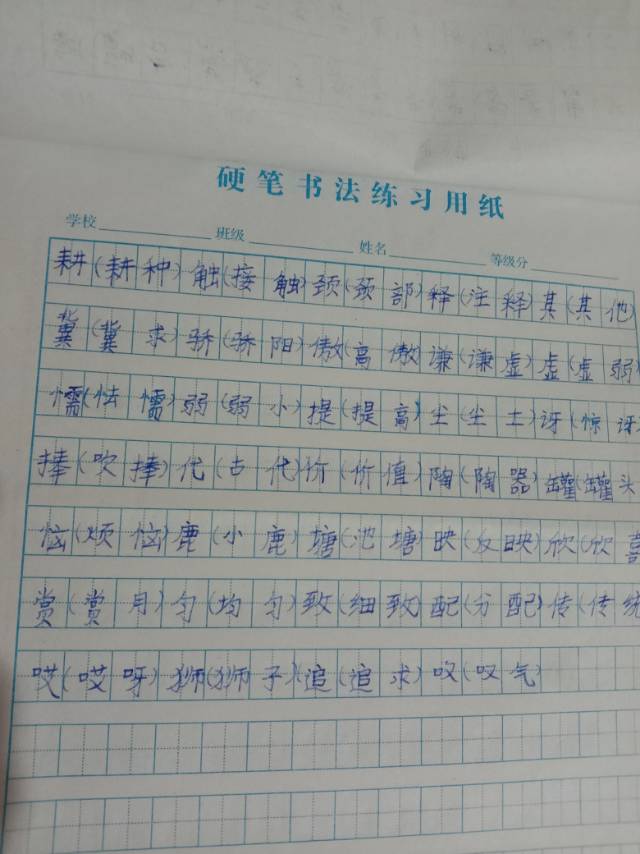 硬笔书法练习用纸
学校 班级 姓名 等级分
耕(耕种)触(接触)颈(颈部)释(注释)其(其他
冀(冀求)骄(骄阳)傲(高傲)谦(谦虚)虚(虚弱
懦(怯懦)弱(弱小)提(提高)尘(尘土)讶(惊讶
捧(吹捧)代(古代)价(价值)陶(陶器)罐(罐头
恼(烦恼)鹿(小鹿)塘(池塘)映(反映)欣(欣喜
赏(赏月)匀(均匀)致(细致)配(分配)传(传统
哎(哎呀)狮(狮子)追(追求)叹(叹气)